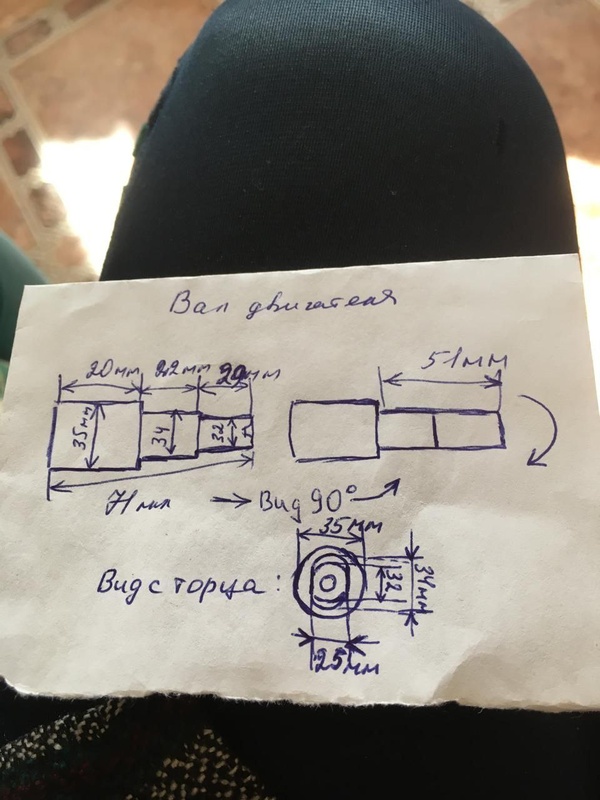 Вал двигателя
20мм 22мм 29мм
51мм
35мм 34 32
71мм
→ Вид 90°
35мм
Вид с торца:
32 34мм
25мм